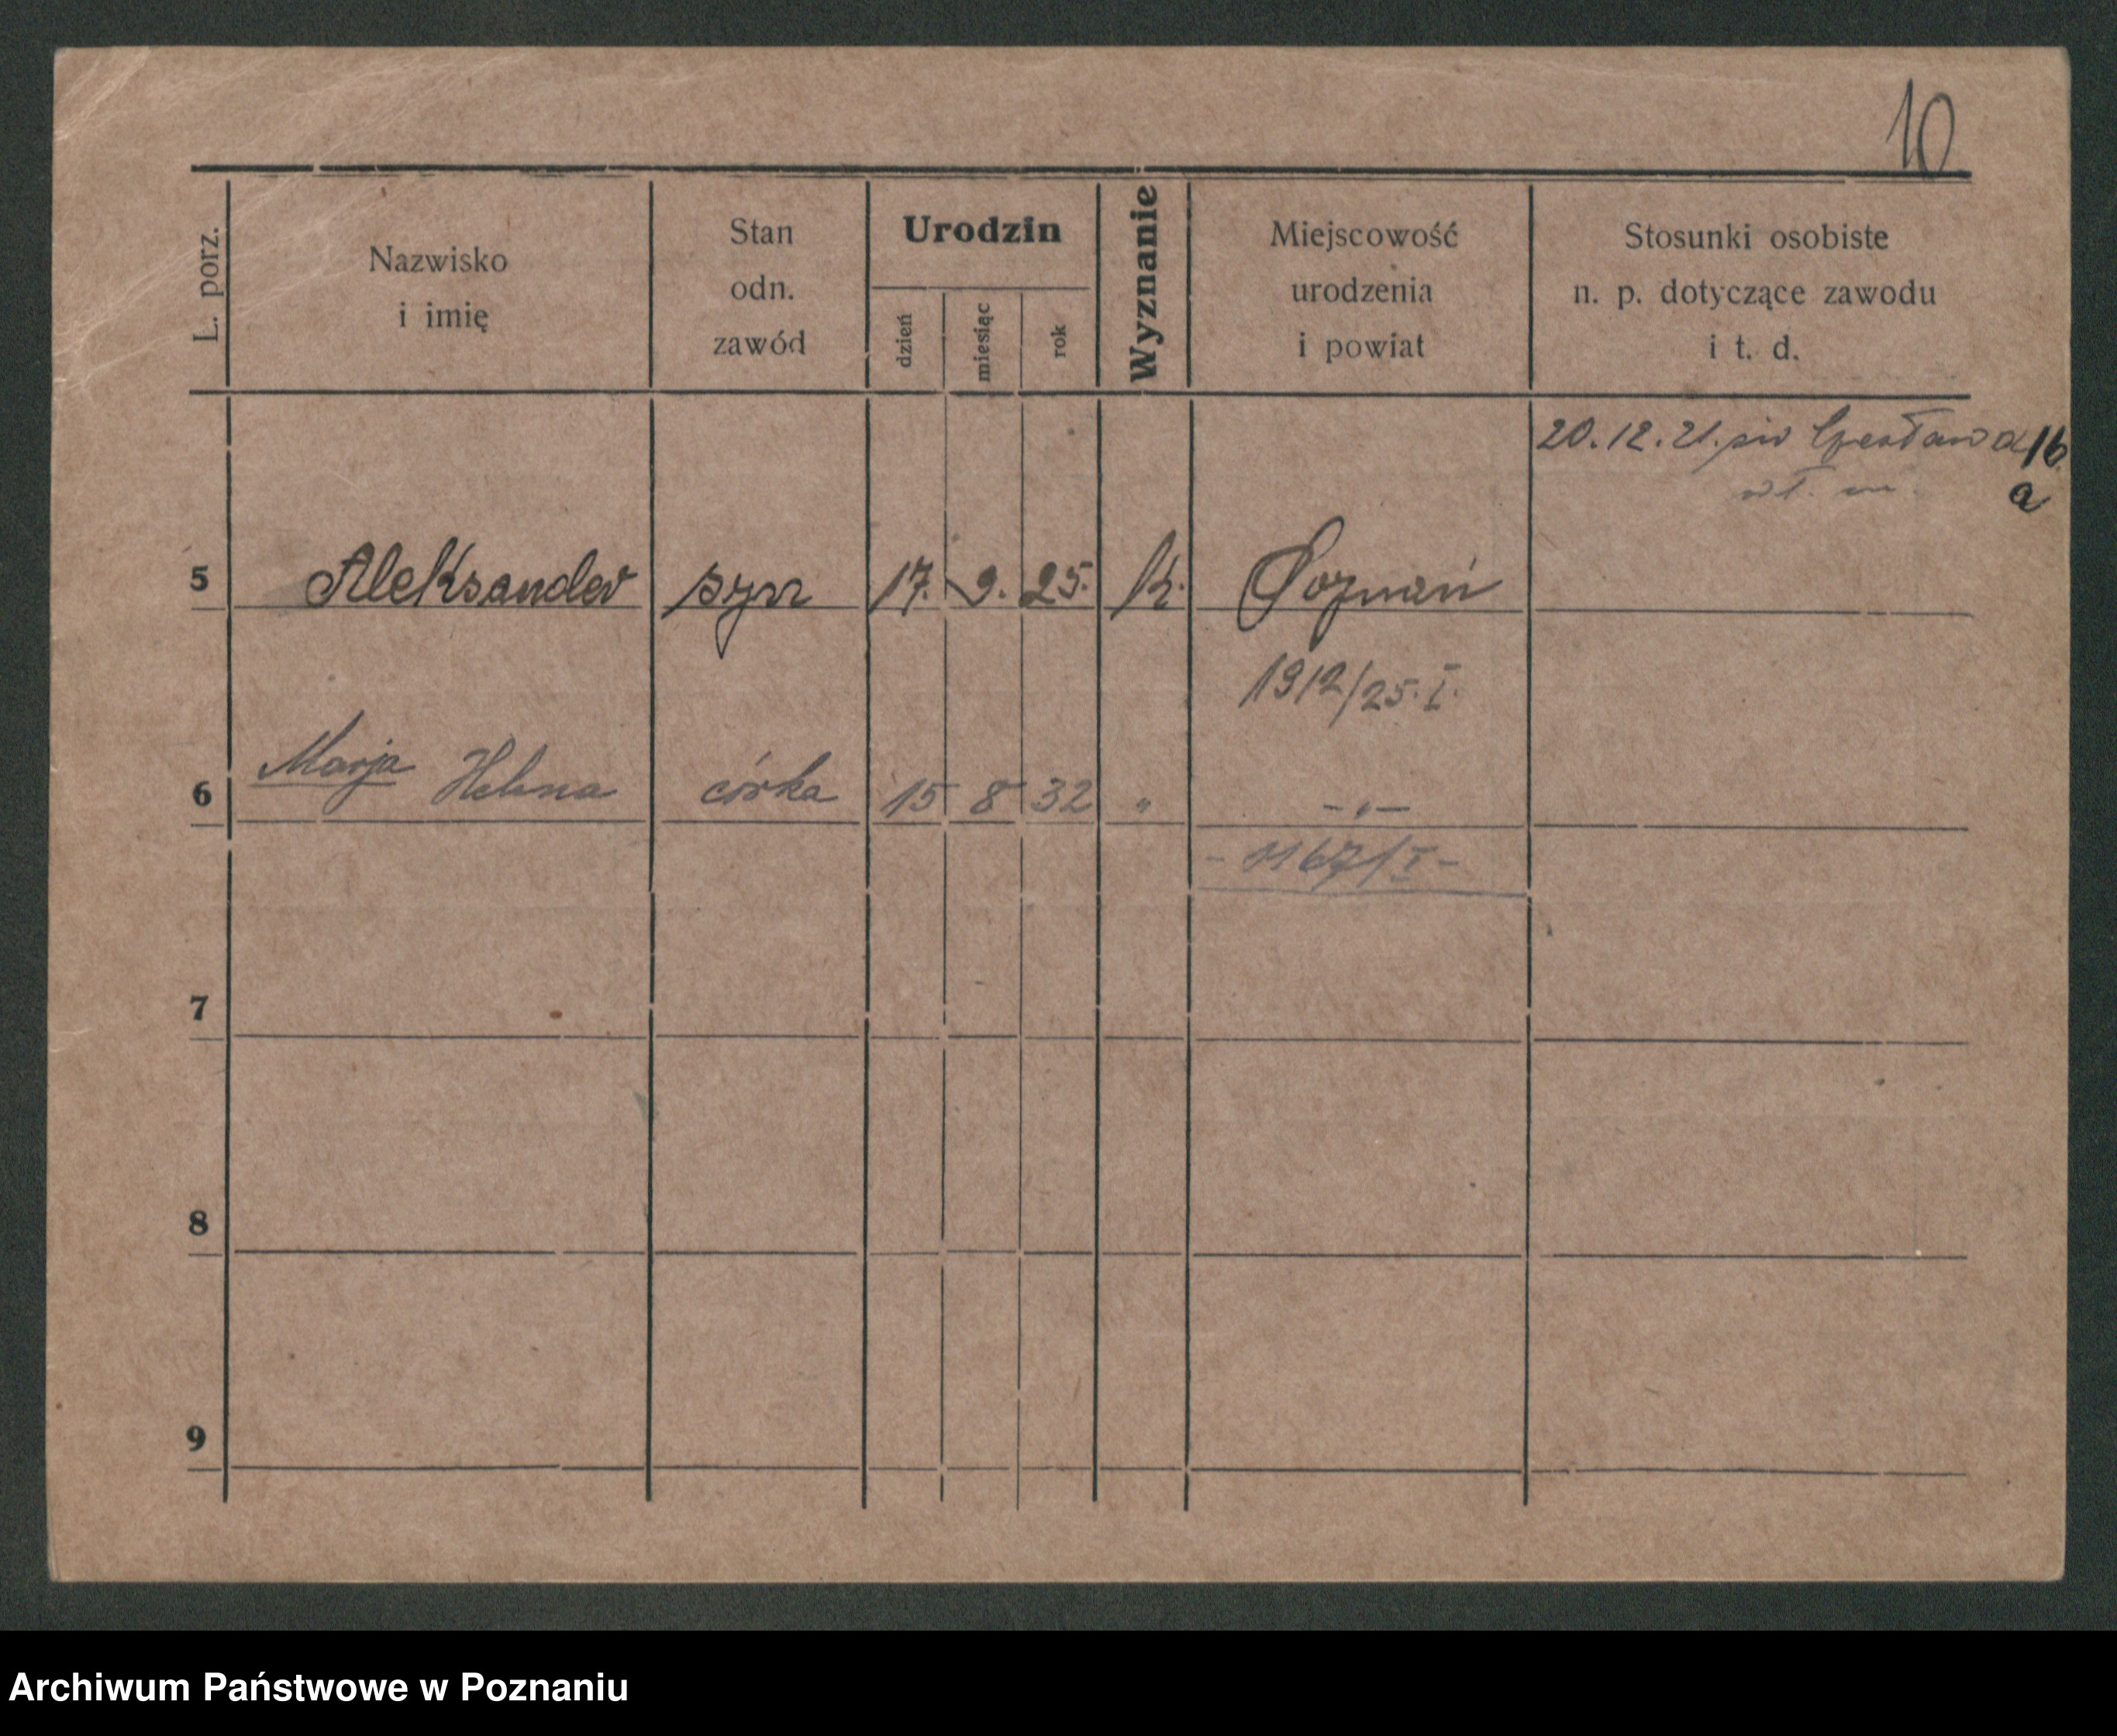 10
L. porz.
Nazwisko
i imię
Stan
odn.
zawód
Urodzin
dzień
miesiąc
rok
Wyznanie
Miejscowość
urodzenia
i powiat
Stosunki osobiste
n. p. dotyczące zawodu
i t. d.
20.12.21.
5 Aleksander syn 17. 9. 25. K. Poznań
1912/25. I.
6 Marja Helena córka 15 8 32 " -"-
- 1167/I -
7
8
9
Archiwum Państwowe w Poznaniu